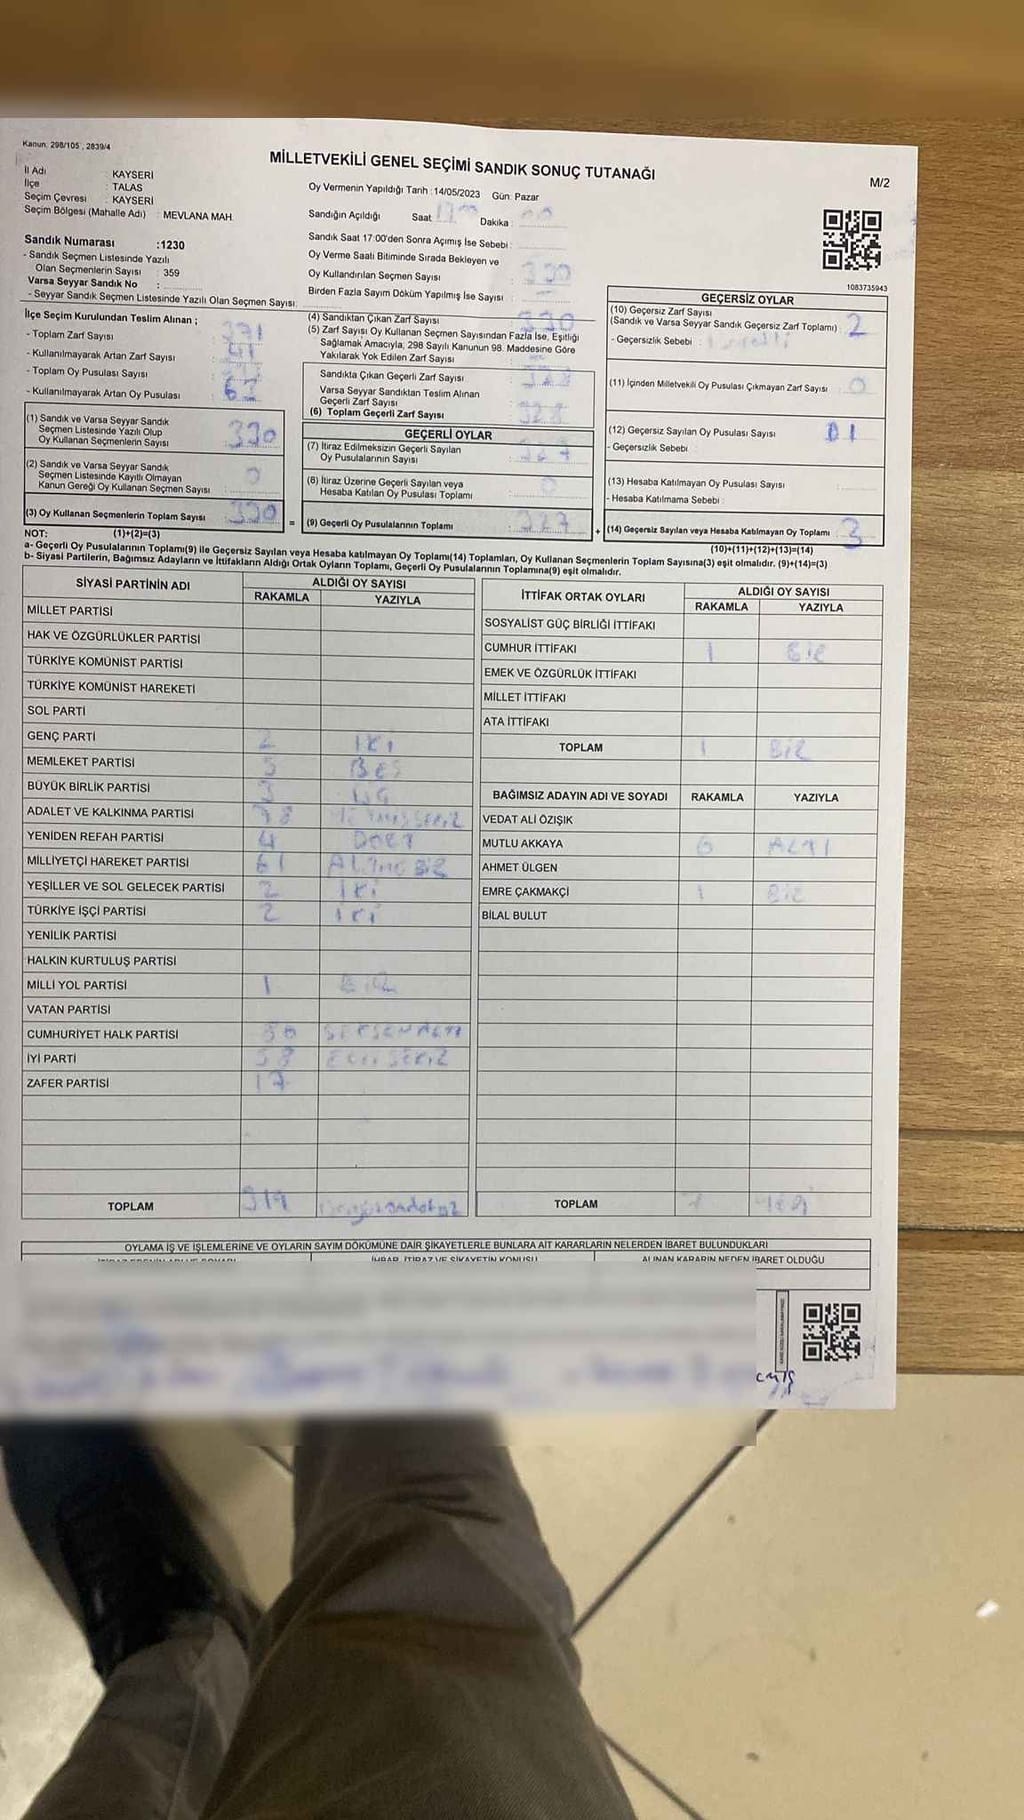 Kanun. 298/105 , 2839/4
MİLLETVEKİLİ GENEL SEÇİMİ SANDIK SONUÇ TUTANAĞI
M/2
İl Adı : KAYSERİ
İlçe : TALAS
Seçim Çevresi : KAYSERİ
Seçim Bölgesi (Mahalle Adı) : MEVLANA MAH.
Oy Vermenin Yapıldığı Tarih : 14/05/2023 Gün: Pazar
Sandığın Açıldığı Saat 17 00 Dakika : 00
Sandık Saat 17:00'den Sonra Açımış İse Sebebi :
Oy Verme Saati Bitiminde Sırada Bekleyen ve
Oy Kullandırılan Seçmen Sayısı : 330
Birden Fazla Sayım Döküm Yapılmış İse Sayısı :
Sandık Numarası :1230
- Sandık Seçmen Listesinde Yazılı
Olan Seçmenlerin Sayısı : 359
Varsa Seyyar Sandık No :
- Seyyar Sandık Seçmen Listesinde Yazılı Olan Seçmen Sayısı:
1083735943
İlçe Seçim Kurulundan Teslim Alınan ;
- Toplam Zarf Sayısı : 371
- Kullanılmayarak Artan Zarf Sayısı : 41
- Toplam Oy Pusulası Sayısı :
- Kullanılmayarak Artan Oy Pusulası :
(1) Sandık ve Varsa Seyyar Sandık
Seçmen Listesinde Yazılı Olup
Oy Kullanan Seçmenlerin Sayısı : 330
(2) Sandık ve Varsa Seyyar Sandık
Seçmen Listesinde Kayıtlı Olmayan
Kanun Gereği Oy Kullanan Seçmen Sayısı : 0
(3) Oy Kullanan Seçmenlerin Toplam Sayısı : 330
(1)+(2)=(3)
(4) Sandıktan Çıkan Zarf Sayısı : 330
(5) Zarf Sayısı Oy Kullanan Seçmen Sayısından Fazla İse, Eşitliği
Sağlamak Amacıyla; 298 Sayılı Kanunun 98. Maddesine Göre
Yakılarak Yok Edilen Zarf Sayısı :
Sandıkta Çıkan Geçerli Zarf Sayısı : 328
Varsa Seyyar Sandıktan Teslim Alınan
Geçerli Zarf Sayısı :
(6) Toplam Geçerli Zarf Sayısı : 328
GEÇERLİ OYLAR
(7) İtiraz Edilmeksizin Geçerli Sayılan
Oy Pusulalarının Sayısı : 327
(8) İtiraz Üzerine Geçerli Sayılan veya
Hesaba Katılan Oy Pusulası Toplamı : 0
= (9) Geçerli Oy Pusulalarının Toplamı : 327
GEÇERSİZ OYLAR
(10) Geçersiz Zarf Sayısı
(Sandık ve Varsa Seyyar Sandık Geçersiz Zarf Toplamı) : 2
- Geçersizlik Sebebi :
(11) İçinden Milletvekili Oy Pusulası Çıkmayan Zarf Sayısı : 0
(12) Geçersiz Sayılan Oy Pusulası Sayısı : 01
- Geçersizlik Sebebi :
(13) Hesaba Katılmayan Oy Pusulası Sayısı :
- Hesaba Katılmama Sebebi :
+ (14) Geçersiz Sayılan veya Hesaba Katılmayan Oy Toplamı : 3
(10)+(11)+(12)+(13)=(14)
NOT:
a- Geçerli Oy Pusulalarının Toplamı(9) ile Geçersiz Sayılan veya Hesaba katılmayan Oy Toplamı(14) Toplamları, Oy Kullanan Seçmenlerin Toplam Sayısına(3) eşit olmalıdır. (9)+(14)=(3)
b- Siyasi Partilerin, Bağımsız Adayların ve İttifakların Aldığı Ortak Oyların Toplamı, Geçerli Oy Pusulalarının Toplamına(9) eşit olmalıdır.
SİYASİ PARTİNİN ADI ALDIĞI OY SAYISI
RAKAMLA YAZIYLA
MİLLET PARTİSİ
HAK VE ÖZGÜRLÜKLER PARTİSİ
TÜRKİYE KOMÜNİST PARTİSİ
TÜRKİYE KOMÜNİST HAREKETİ
SOL PARTİ
GENÇ PARTİ 2 İKİ
MEMLEKET PARTİSİ 5 BEŞ
BÜYÜK BİRLİK PARTİSİ 3 ÜÇ
ADALET VE KALKINMA PARTİSİ 78
YENİDEN REFAH PARTİSİ 4 DÖRT
MİLLİYETÇİ HAREKET PARTİSİ 61 ALTMIŞ BİR
YEŞİLLER VE SOL GELECEK PARTİSİ 2 İKİ
TÜRKİYE İŞÇİ PARTİSİ 2 İKİ
YENİLİK PARTİSİ
HALKIN KURTULUŞ PARTİSİ
MİLLİ YOL PARTİSİ 1 BİR
VATAN PARTİSİ
CUMHURİYET HALK PARTİSİ 86 SEKSENALTI
İYİ PARTİ 58 ELLİ SEKİZ
ZAFER PARTİSİ 17
TOPLAM 319
İTTİFAK ORTAK OYLARI ALDIĞI OY SAYISI
RAKAMLA YAZIYLA
SOSYALİST GÜÇ BİRLİĞİ İTTİFAKI
CUMHUR İTTİFAKI 1 BİR
EMEK VE ÖZGÜRLÜK İTTİFAKI
MİLLET İTTİFAKI
ATA İTTİFAKI
TOPLAM 1 BİR
BAĞIMSIZ ADAYIN ADI VE SOYADI RAKAMLA YAZIYLA
VEDAT ALİ ÖZIŞIK
MUTLU AKKAYA 6 ALTI
AHMET ÜLGEN
EMRE ÇAKMAKÇİ 1 BİR
BİLAL BULUT
TOPLAM 7 YEDİ
OYLAMA İŞ VE İŞLEMLERİNE VE OYLARIN SAYIM DÖKÜMÜNE DAİR ŞİKAYETLERLE BUNLARA AİT KARARLARIN NELERDEN İBARET BULUNDUKLARI
İHBAR, İTİRAZ VE ŞİKAYETİN KONUSU ALINAN KARARIN NEDEN İBARET OLDUĞU